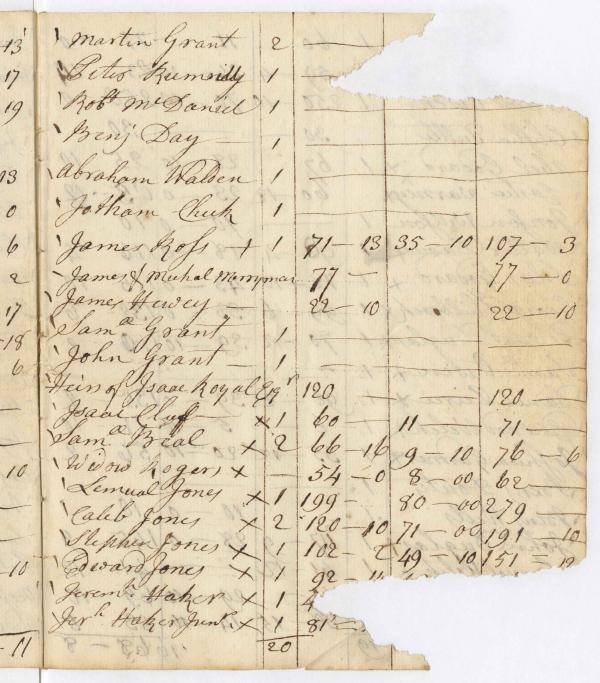 13 Martin Grant 2 —
17 Peter Rumrilly 1 —
19 Robt McDaniel 1 —
Benj Day — 1 —
13 Abraham Walden 1 —
0 Jotham Cluk 1 —
6 James Ross + 1 71 — 13 35 — 10 107 — 3
2 James & Michal Merryman 77 — 77 — 0
17 James Hewey — 22 — 10 22 — 10
18 Saml Grant 1 —
6 John Grant — 1 —
Heirs of Isaac Royal Esqr 120 — 120 —
Isaac Cluff x 1 60 11 — 71 —
Saml Beal x 2 66 — 16 9 — 10 76 — 6
10 Widow Rogers x — 54 — 0 8 — 00 62 —
Lemual Jones x 1 199 — 80 — 00 279 —
Caleb Jones x 2 120 — 10 71 — 00 191 — 10
Stephen Jones x 1 102 — 2 49 — 10 151 — 12
10 Edward Jones x 1 92 —
Jeremh Haker x 1 4
Jerh Haker Junr x 1 81 —
11 20